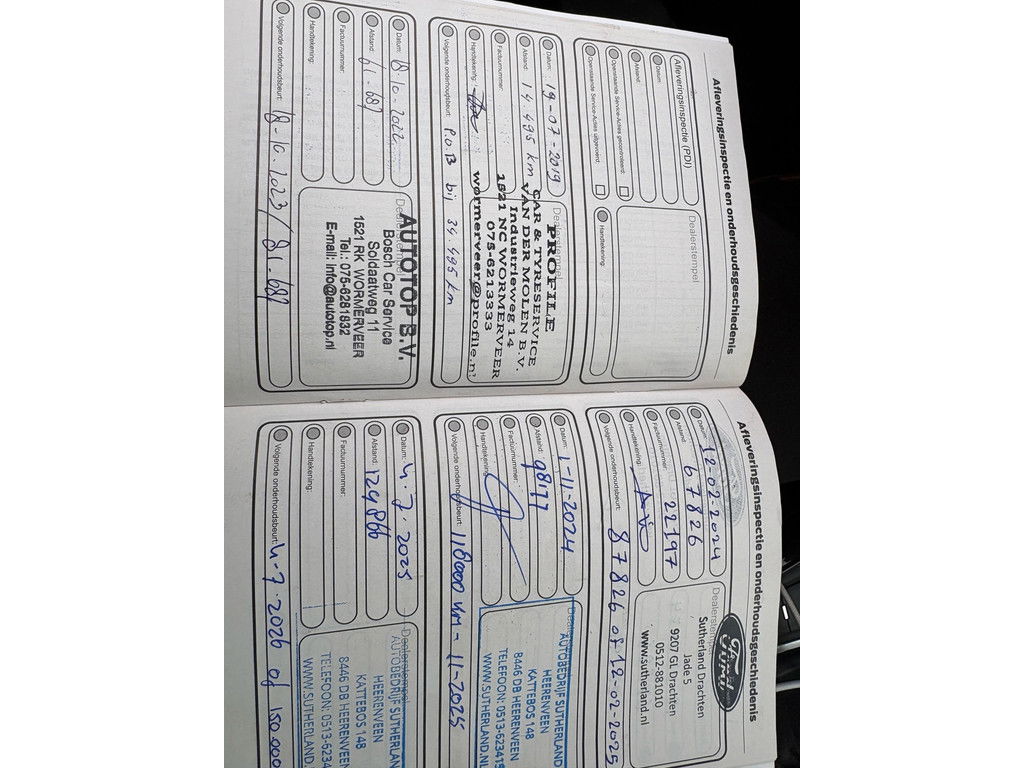 Afleveringsinspectie en onderhoudsgeschiedenis
Afleveringsinspectie (PDI)
Datum:
Afstand:
Openstaande Service-Acties gecontroleerd:
Openstaande Service-Acties uitgevoerd:
Dealerstempel
Handtekening:
Datum: 19-07-2019
Afstand: 14.495 km
Factuurnummer:
Handtekening:
Volgende onderhoudsbeurt: P.O.B bij 34.495 km
Dealerstempel
PROFILE
CAR & TYRESERVICE
VAN DER MOLEN B.V.
Industrieweg 14
1521 NC WORMERVEER
075-6213333
wormerveer@profile.nl
Datum: 18-10-2022
Afstand: 61.689
Factuurnummer:
Handtekening:
Volgende onderhoudsbeurt: 18-10-2023 / 81.689
Dealerstempel
AUTOTOP B.V.
Bosch Car Service
Soldaatweg 11
1521 RK WORMERVEER
Tel.: 075-6281832
E-mail: info@autotop.nl
Afleveringsinspectie en onderhoudsgeschiedenis
Datum: 12-02-2024
Afstand: 67826
Factuurnummer: 22197
Handtekening:
Volgende onderhoudsbeurt: 87826 of 12-02-2025
Dealerstempel
Sutherland Drachten
Jade 5
9207 GL Drachten
0512-881010
www.sutherland.nl
Datum: 1-11-2024
Afstand: 98177
Factuurnummer:
Handtekening:
Volgende onderhoudsbeurt: 118000 km - 11-2025
AUTOBEDRIJF SUTHERLAND
HEERENVEEN
KATTEBOS 148
8446 DB HEERENVEEN
TELEFOON: 0513-623415
WWW.SUTHERLAND.NL
Datum: 4-7-2025
Afstand: 129866
Factuurnummer:
Handtekening:
Volgende onderhoudsbeurt: 4-7-2026 of 150.000
Dealerstempel
AUTOBEDRIJF SUTHER
HEERENVEEN
KATTEBOS 148
8446 DB HEERENVEEN
TELEFOON: 0513-6234
WWW.SUTHERLAND.